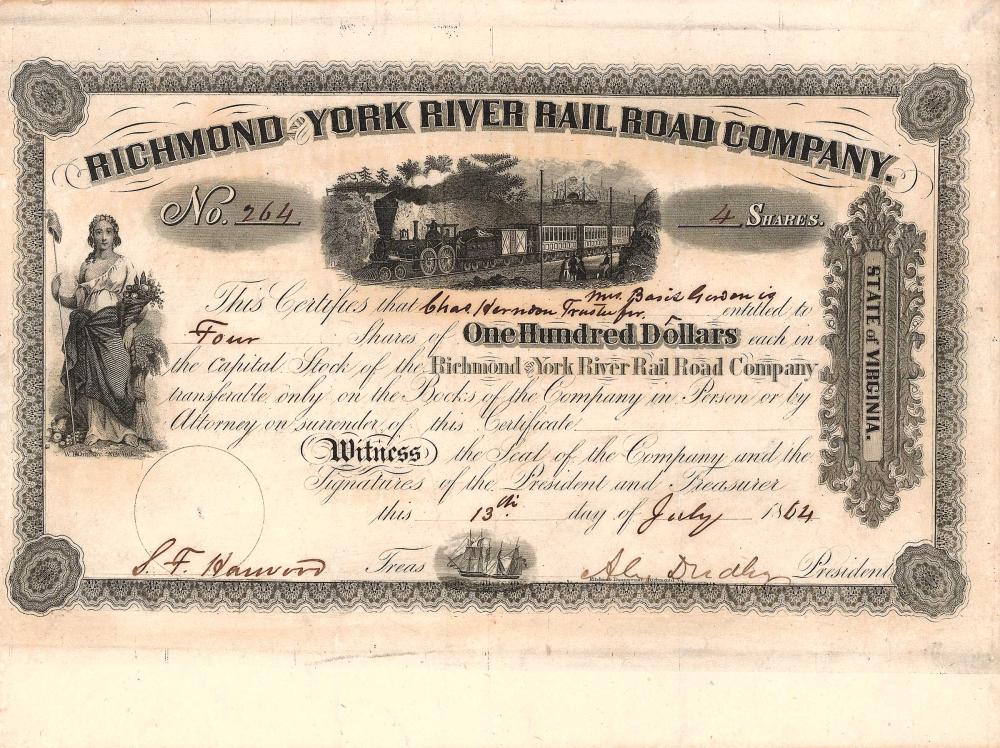 RICHMOND AND YORK RIVER RAIL ROAD COMPANY.
No. 264
4 SHARES.
This Certifies that Chas Herndon Trustee for Mrs. Basil Gordon is entitled to
Four Shares of One Hundred Dollars each in
the Capital Stock of the Richmond and York River Rail Road Company
transferable only on the Books of the Company in Person or by
Attorney on surrender of this Certificate.
Witness the Seal of the Company and the
Signatures of the President and Treasurer
this 13th day of July 1864
S. F. Harwood Treas
A. Dudley President
STATE OF VIRGINIA.